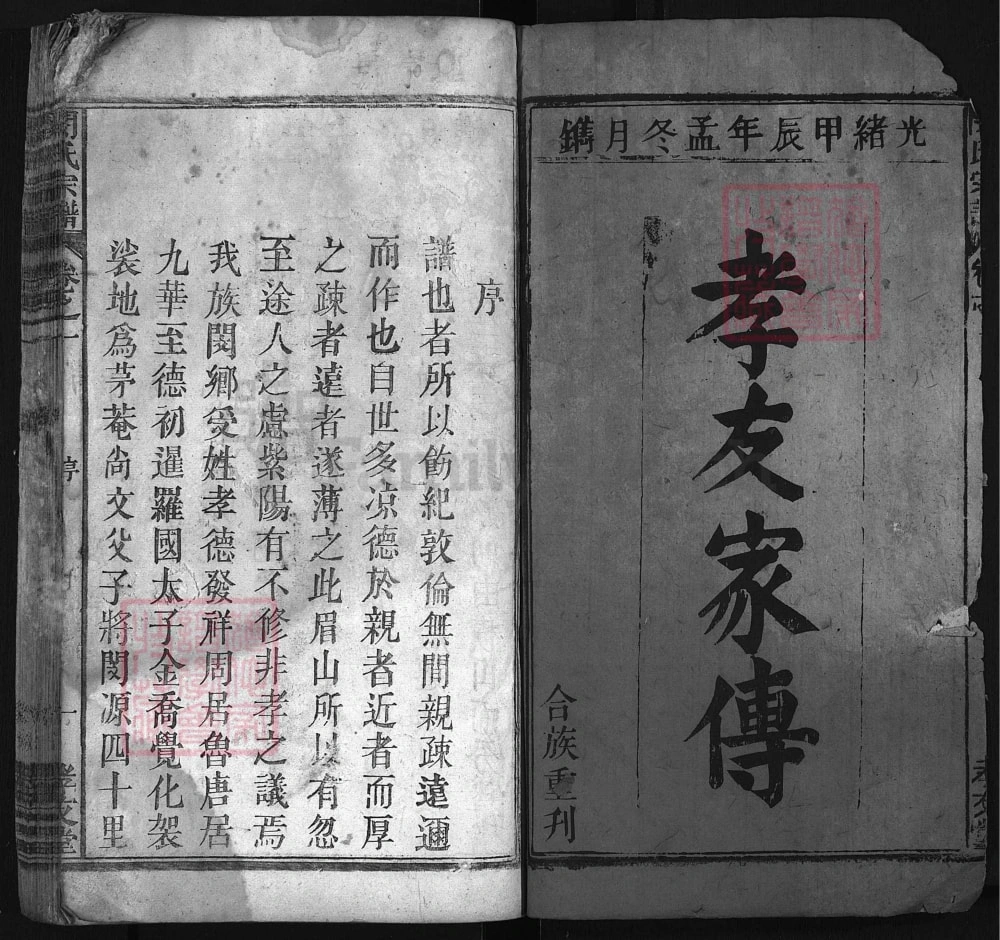 光緒甲辰年孟冬月鐫
孝友家傳
合族重刊
序
譜也者所以飭紀敦倫無間親疎遠邇
而作也自世多凉德於親者近者而厚
之疎者遠者遂薄之此眉山所以有忽
至途人之慮紫陽有不修非孝之議焉
我族閔鄉受姓孝德發祥周居魯唐居
九華至德初暹羅國太子金喬覺化袈
裟地為茅菴尙文父子將閔源四十里
閔氏宗譜
卷之一
序
一
孝友堂